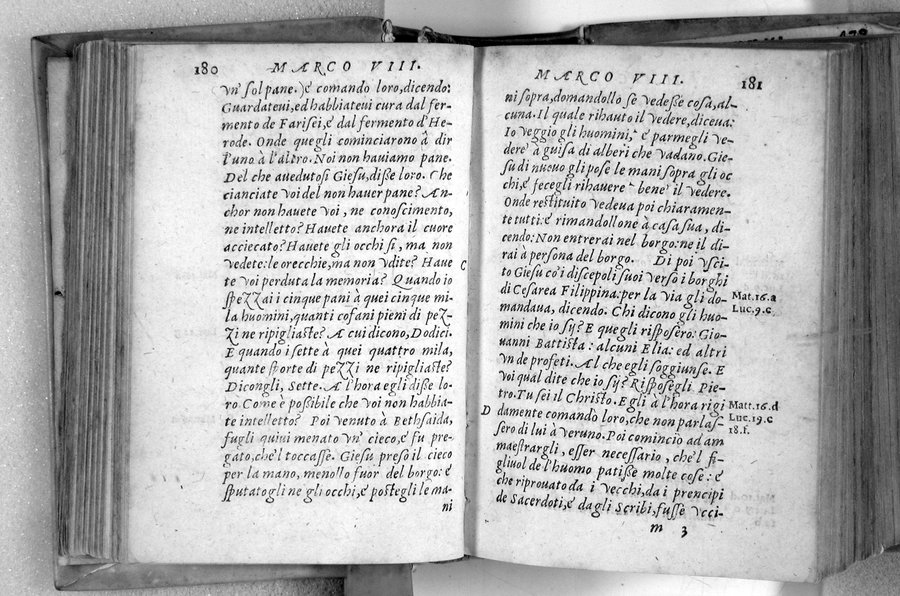 180 MARCO VIII.
vn' sol pane. E comandò loro, dicendo:
Guardateui, ed habbiateui cura dal fer-
mento de Farisei, e dal fermento d'He-
rode. Onde quegli cominciarono à dir
l'uno à l'altro. Noi non hauiamo pane.
Del che auedutosi Giesu, disse loro. Che
cianciate voi del non hauer pane? An-
chor non hauete voi, ne conoscimento,
ne intelletto? Hauete anchora il cuore
acciecato? Hauete gli occhi sì, ma non
vedete: le orecchie, ma non vdite? Haue
te voi perduta la memoria? Quando io
spezzai i cinque pani à quei cinque mi-
la huomini, quanti cofani pieni di pez-
zi ne ripigliaste? A cui dicono, Dodici.
E quando i sette à quei quattro mila,
quante sporte di pezzi ne ripigliaste?
Dicongli, Sette. A l'hora egli disse lo-
ro. Come è possibile che voi non habbia-
te intelletto? Poi venuto à Bethsaida,
fugli quiui menato vn' cieco, e fu pre-
gato, che'l toccasse. Giesu preso il cieco
per la mano, menollo fuor del borgo: e
sputatogli ne gli occhi, e postegli le ma-
ni
MARCO VIII. 181
ni sopra, domandollo se vedesse cosa, al-
cuna. Il quale rihauto il vedere, diceua:
Io veggio gli huomini, e parmegli ve-
dere à guisa di alberi che vadano. Gie-
su di nuouo gli pose le mani sopra gli oc
chi, e fecegli rihauere bene il vedere.
Onde restituito vedeua poi chiaramen-
te tutti: e rimandollone à casa sua, di-
cendo: Non entrerai nel borgo: ne il di-
rai à persona del borgo. Di poi vsci-
C
to Giesu co'i discepoli suoi verso i borghi
di Cesarea Filippina: per la via gli do-
Mat.16.a
mandaua, dicendo. Chi dicono gli huo-
Luc.9.c.
mini che io sÿ? E quegli risposero: Gio-
uanni Battista: alcuni Elia: ed altri
vn de profeti. Al che egli soggiunse. E
voi qual dite che io sÿ? Risposegli Pie-
tro. Tu sei il Christo. Egli à l'hora rigi
Matt.16.d
D
damente comandò loro, che non parlas-
Luc.19.c
sero di lui à veruno. Poi cominciò ad am
18.f.
maestrargli, esser necessario, che'l fi-
gliuol de l'huomo patisse molte cose: e
che riprouato da i vecchi, da i prencipi
de Sacerdoti, e da gli Scribi, fusse vcci-
m 3